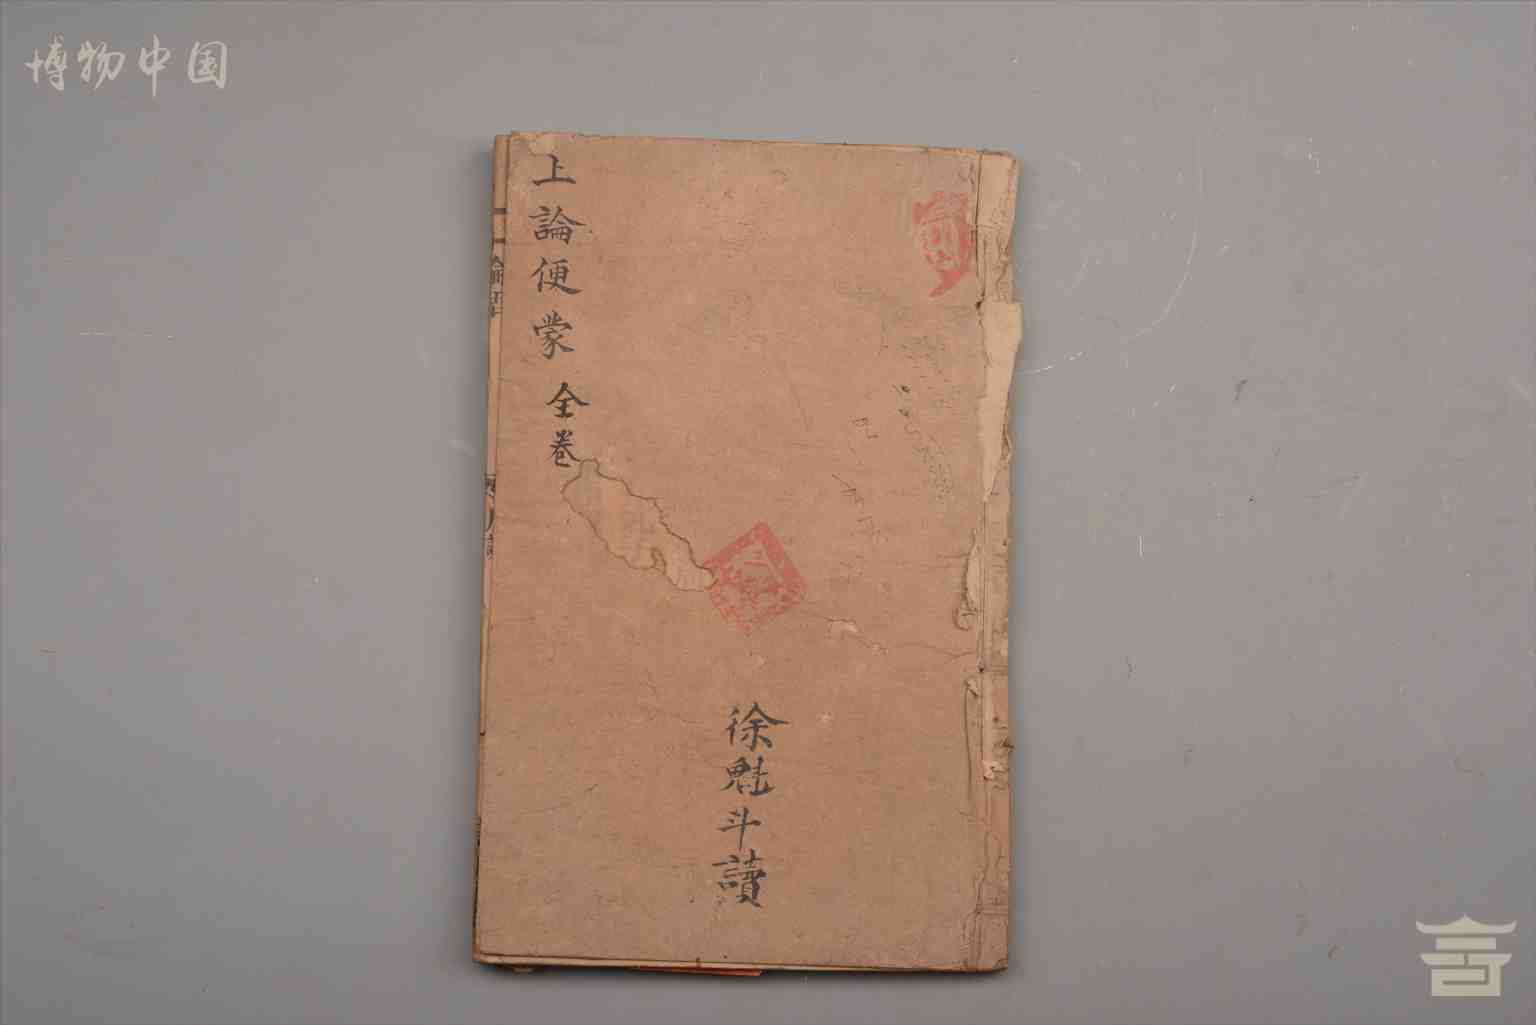 博物中国
上論便蒙 全卷
徐魁斗讀